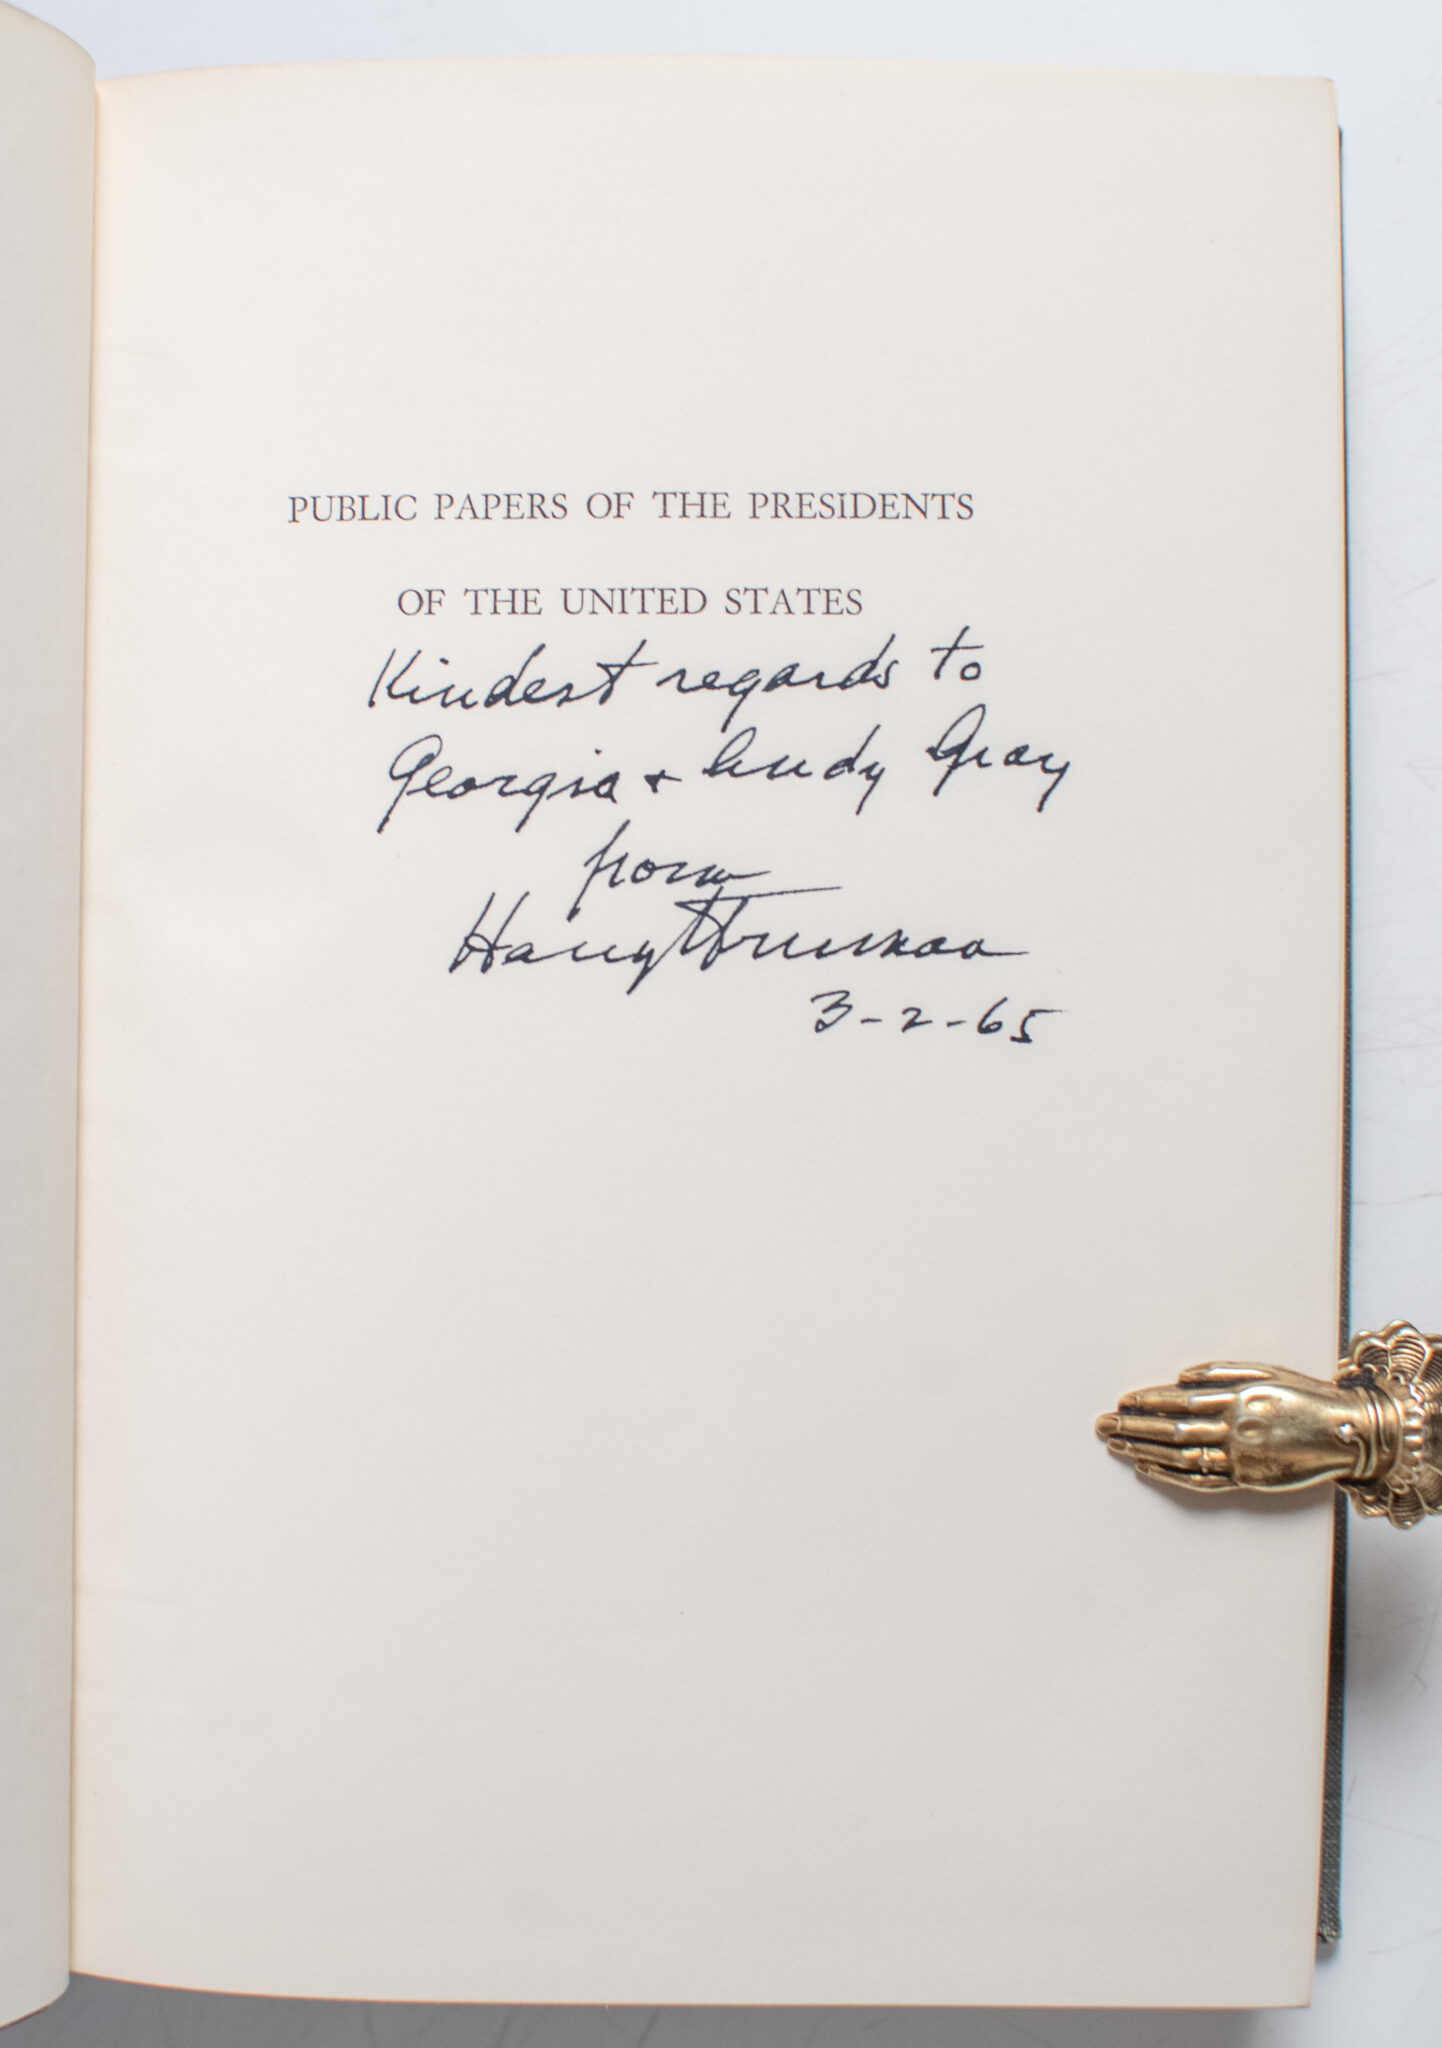 PUBLIC PAPERS OF THE PRESIDENTS
OF THE UNITED STATES
Kindest regards to
Georgia + Andy Gray
from
Harry S Truman
3-2-65